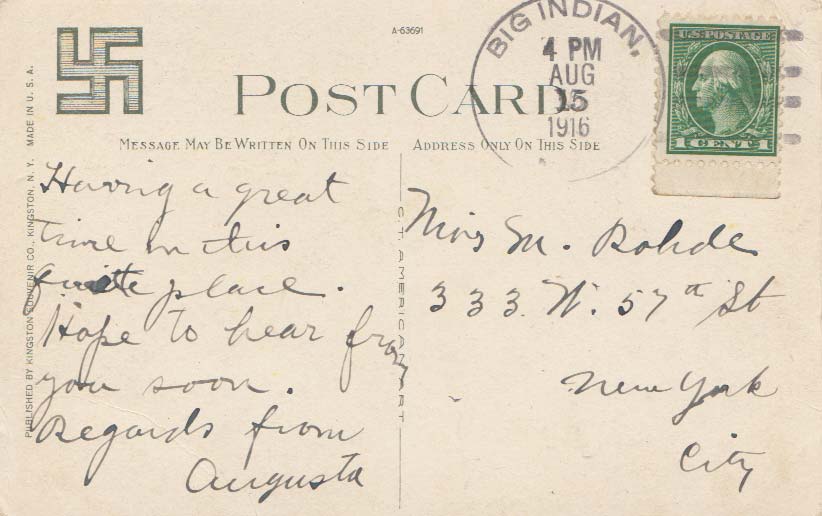 A-63691
POST CARD
MESSAGE MAY BE WRITTEN ON THIS SIDE
ADDRESS ONLY ON THIS SIDE
BIG INDIAN,
4 PM
AUG
15
1916
U.S. POSTAGE
1 CENT 1
PUBLISHED BY KINGSTON SOUVENIR CO., KINGSTON, N. Y. MADE IN U. S. A.
Having a great
time in this
place.
Hope to hear from
you soon.
Regards from
Augusta
C.T. AMERICAN ART
Miss M. Rohde
333 W. 57th St
New York
City